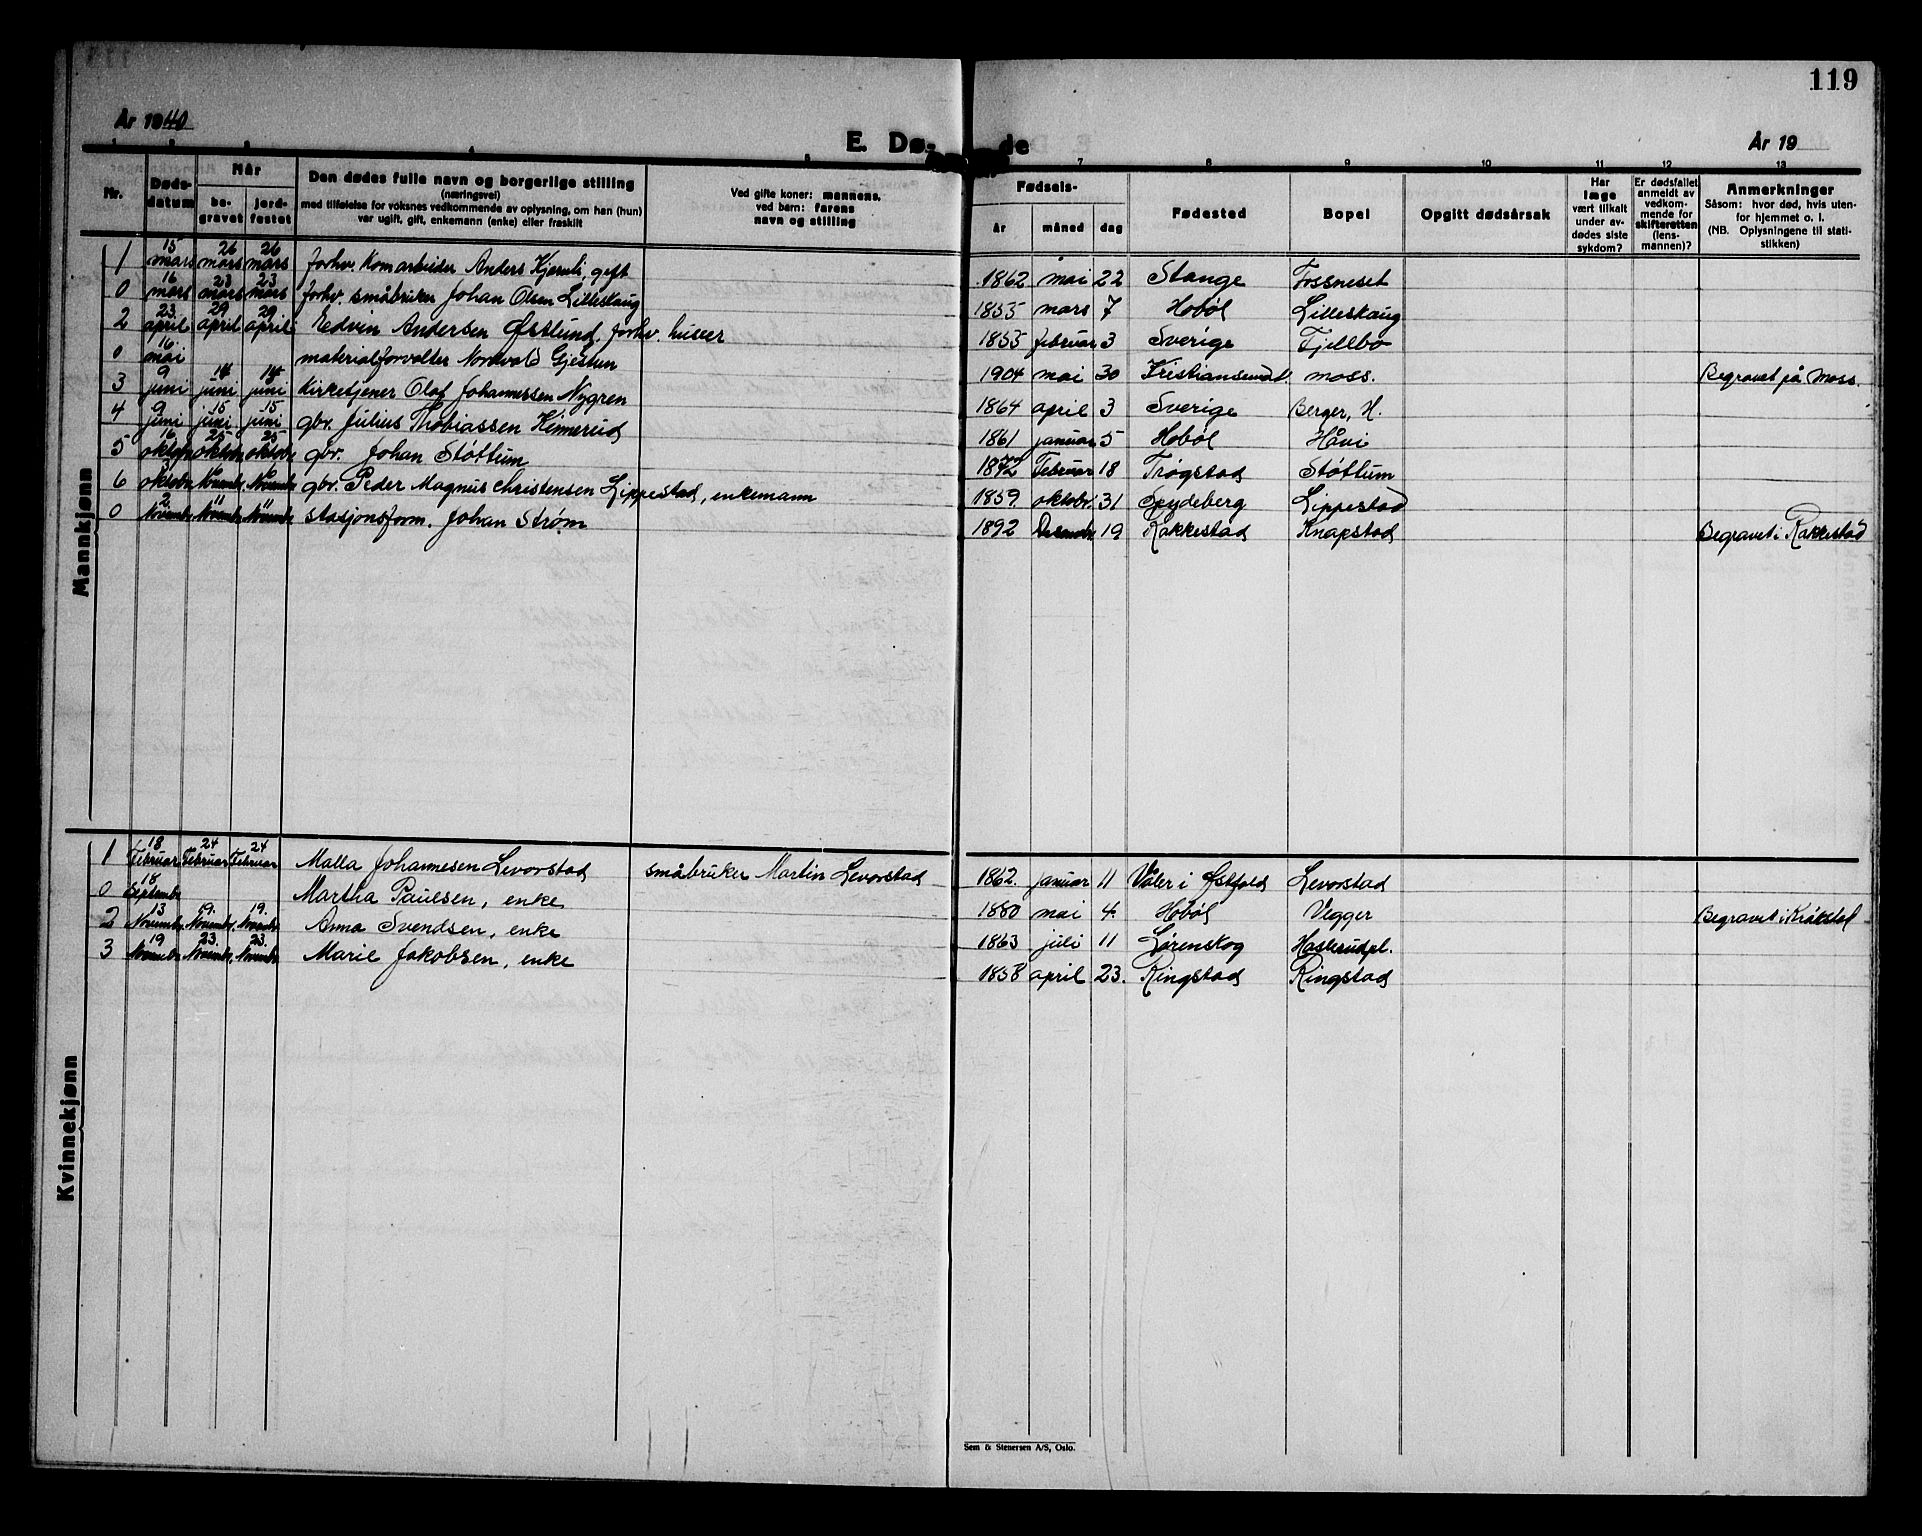 119
År 1940
E. Dø- de
År 19
1 2 3 4 5 7 8 9 10 11 12 13
Nr.
Døds-datum
Når
be-gravet
jord-festet
Den dødes fulle navn og borgerlige stilling
(næringsvei)
med tilføielse for voksnes vedkommende av oplysning, om han (hun)
var ugift, gift, enkemann (enke) eller fraskilt
Ved gifte koner: mannens,
ved børn: farens
navn og stilling
Fødsels-
år måned dag
Fødested
Bopel
Opgitt dødsårsak
Har
læge
vært tilkalt
under av-
dødes siste
sykdom?
Er dødsfallet
anmeldt av
vedkom-
mende for
skifteretten
(lens-
mannen)?
Anmerkninger
Såsom: hvor død, hvis uten-
for hjemmet o. l.
(NB. Oplysningene til stati-
stikken)
Mannkjønn
1 15 mars 26 mars 26 mars forhv. Komarbeider Anders Kjernli, gift 1862 mai 22 Stange Fossneset
0 16 mars 23 mars 23 mars forhv. småbruker Johan Olsen Lilleskaug 1855 mars 7 Hobøl Lilleskaug
2 23. april 29 april 29 april Edvin Andersen Østlund, forhv. hviler 1855 februar 3 Sverige Fjellbo
0 16 mai materialforvalter Nordvald Gjestun 1904 mai 30 Kristiansund. moss. Begravet på Moss.
3 9 juni 14 juni 14 juni Kirketjener Olaf Johannessen Nygren 1864 april 3 Sverige Berger, H.
4 9 juni 15 juni 15 juni gbr. Julius Thobiassen Kinnerud 1861 januar 5 Hobøl Håvi
5 16 oktobr 25 oktobr 25 oktobr gbr. Johan Støttum 1872 Februar 18 Trøgstad Støttum
6 oktobr Novembr Novembr gbr. Peder Magnus Christensen Lippestad, enkemann 1859. oktobr 31 Spydeberg Lippestad
0 2 Novembr 11 Novembr 11 Novembr stasjonsform. Johan Strøm 1892 Desembr 19 Rakkestad Knapstad Begravet i Rakkestad
Kvinnekjønn
1 18 Februar 24 Februar 24 Februar Malla Johannesen Levorstad småbruker Martin Levorstad 1862. januar 11 Våler i Østfold Levorstad
0 18 Septembr Martha Paulsen, enke 1880 mai 4. Hobøl Vegger Begravet i Kråkstad
2 13 Novembr 19. Novembr 19. Novembr Anna Svendsen, enke 1863 juli 11 Lørenskog Haslerudpl.
3 19 Novembr 23. Novembr 23. Novembr Marie Jakobsen, enke 1858 april 23. Ringstad Ringstad
Sem & Stenersen A/S, Oslo.